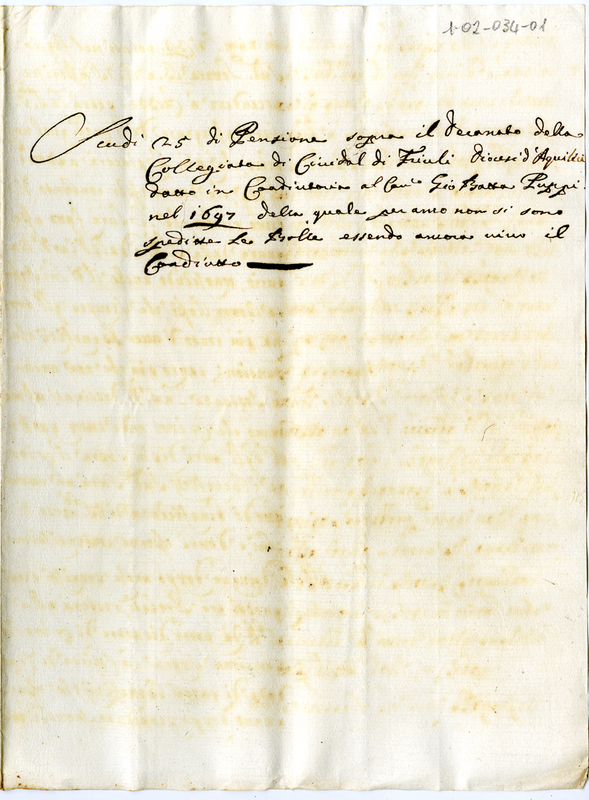 1-02-034-01
Scudi 25 di Pensione sopra il Decanato della
Collegiata di Cividal di Friuli Diocesi d'Aquilea
datto in Coadiutoria al Can.co Gio Batta Puppi
nel 1697 della quale per anco non si sono
spedite le Bolle essendo ancora vivo il
Coadiutto